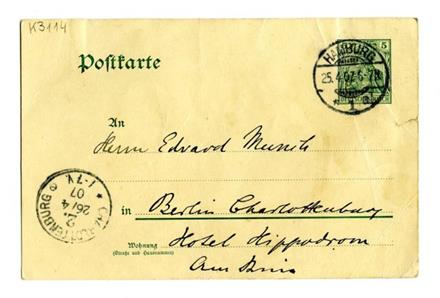 K3114
Postkarte
HAMBURG
25.4.07.6-7N
* 1 a
5
An
Herrn Edvard Munch
CHARLOTTENBURG
2.
26/4
07
1-7V
in Berlin Charlottenburg
Wohnung
(Straße und Hausnummer)
Hotel Hippodrom
Am Knie